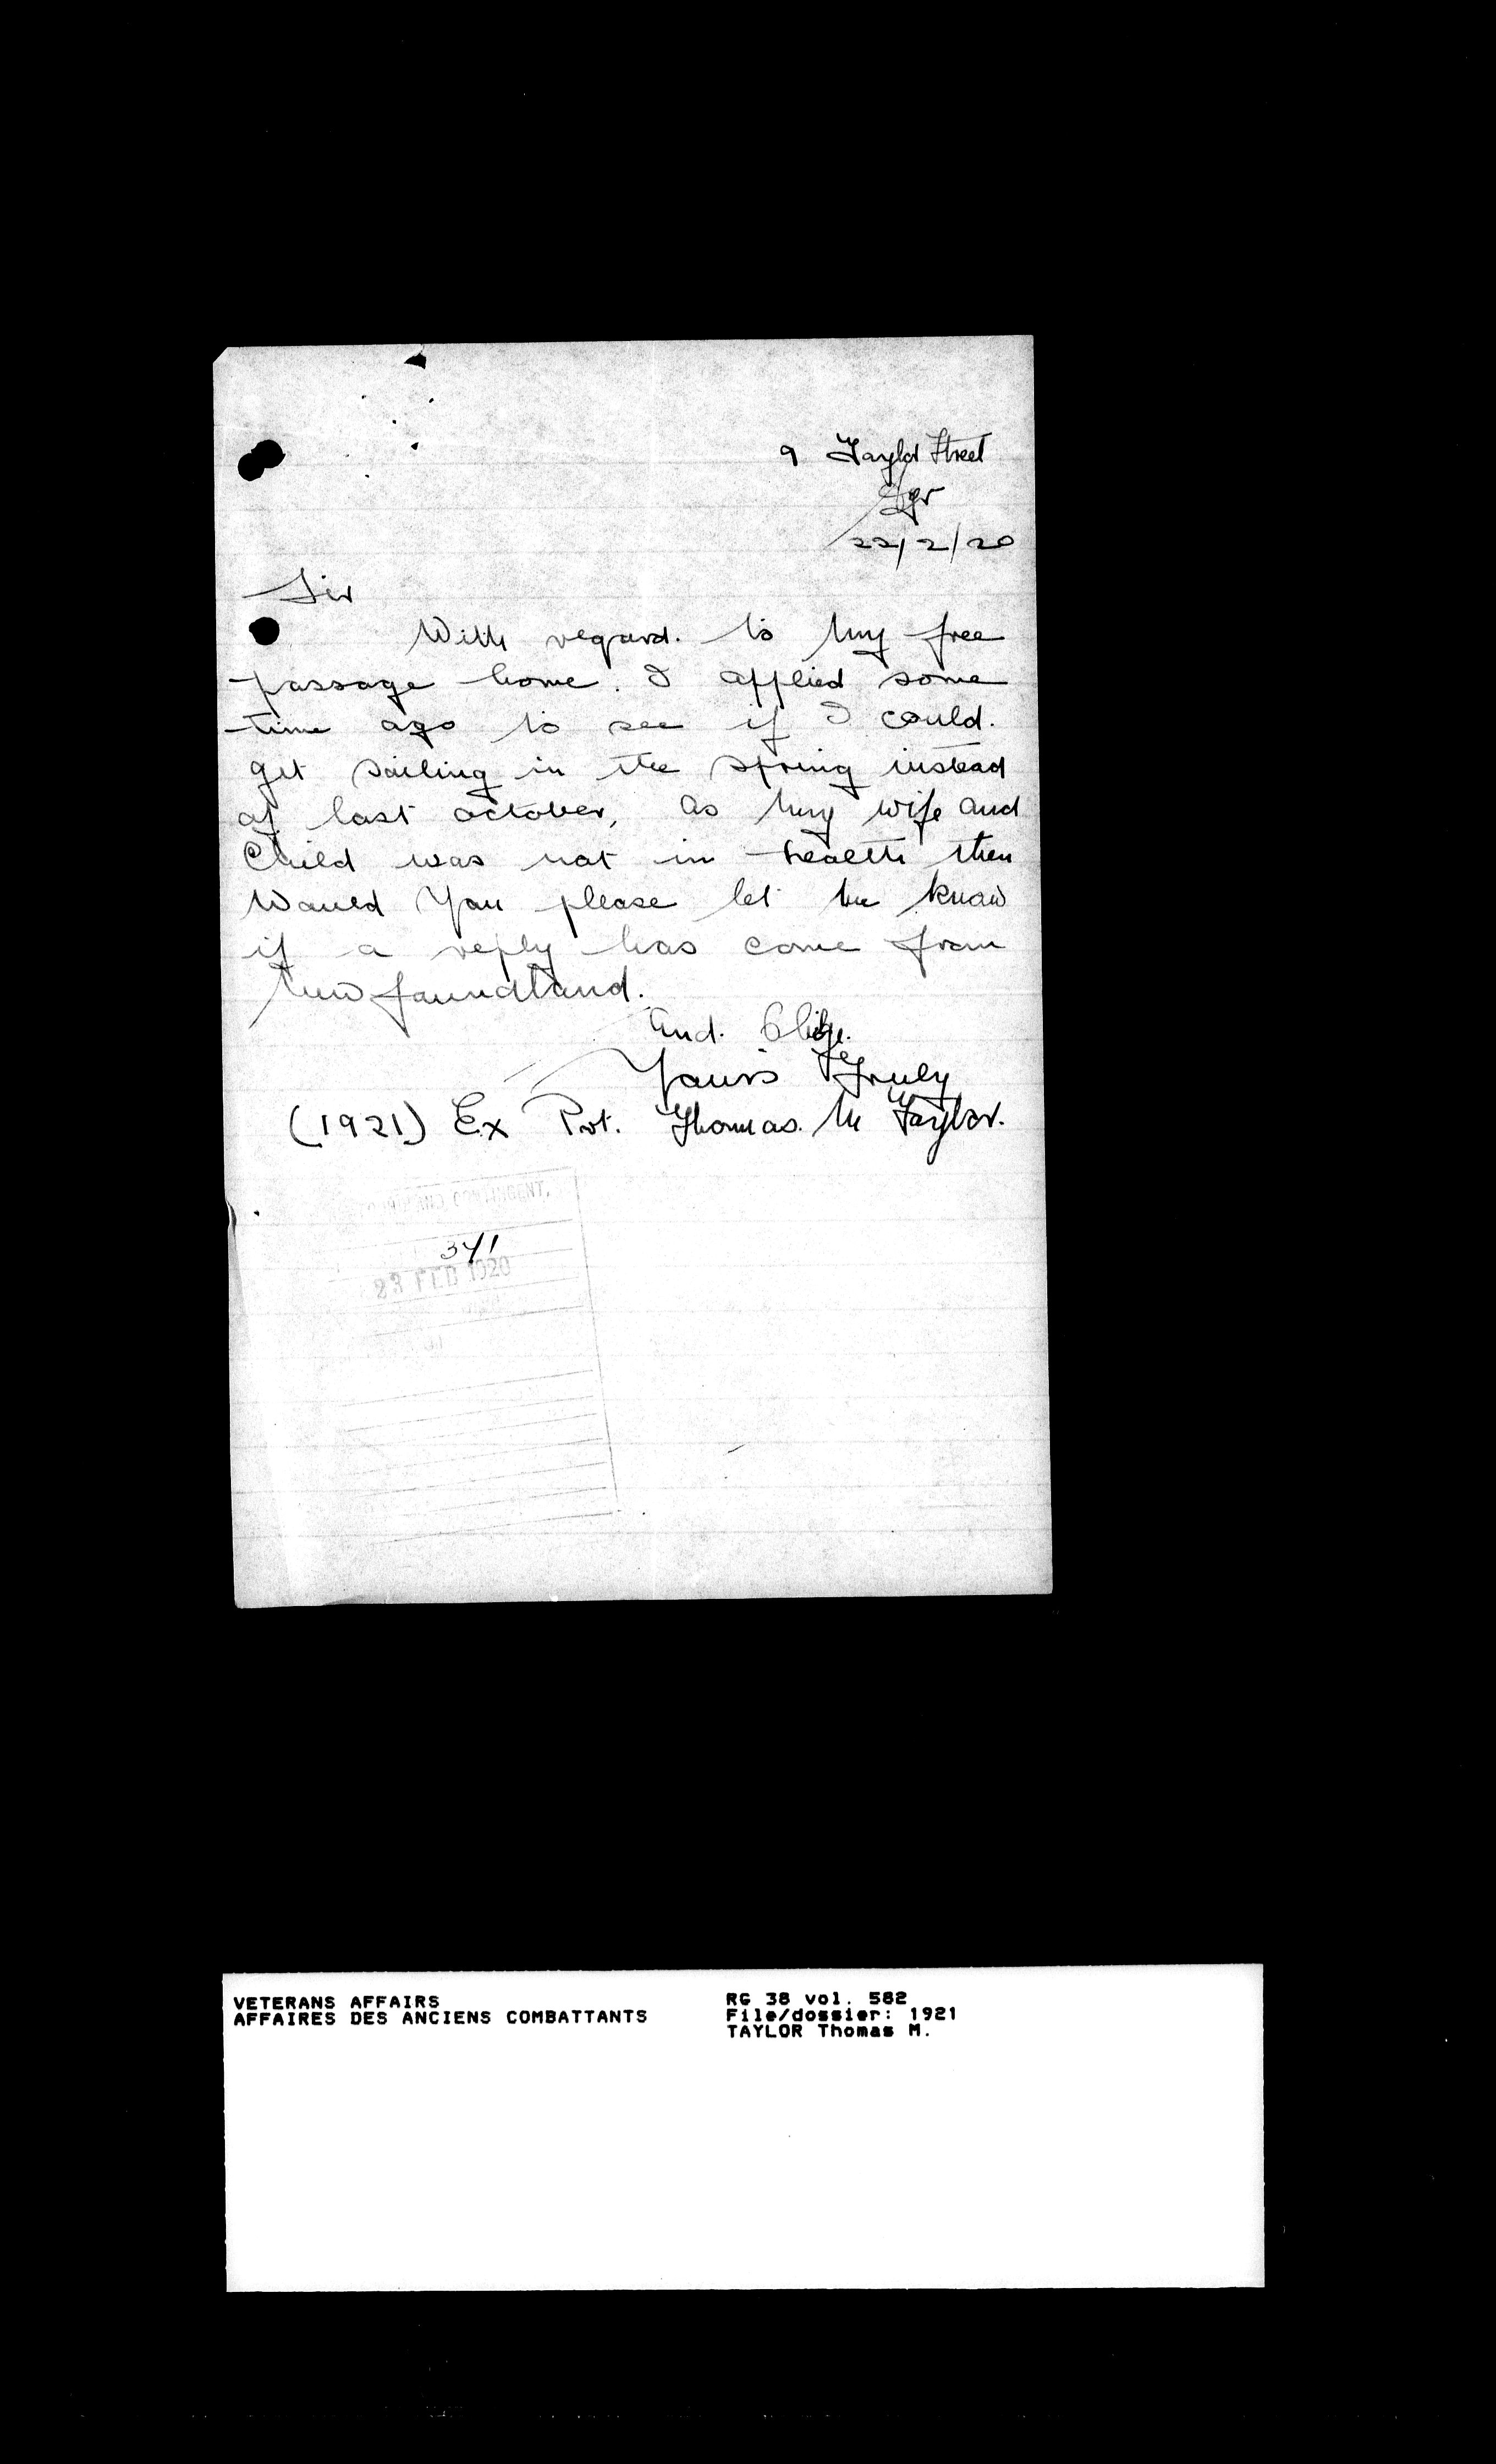 9 Taylor Street
Ayr
22/2/20
Sir
With regard. to my free
passage home. I applied some
time ago to see if I could.
get sailing in the spring instead
of last october, as my wife and
Child was not in health then
Would you please let me know
if a reply has come from
Newfoundland.
And. Oblige.
Yours Truly
(1921) Ex Pvt. Thomas. M Taylor.
CONTINGENT.
341
23 FEB 1920
VETERANS AFFAIRS
AFFAIRES DES ANCIENS COMBATTANTS
RG 38 vol. 582
File/dossier: 1921
TAYLOR Thomas M.